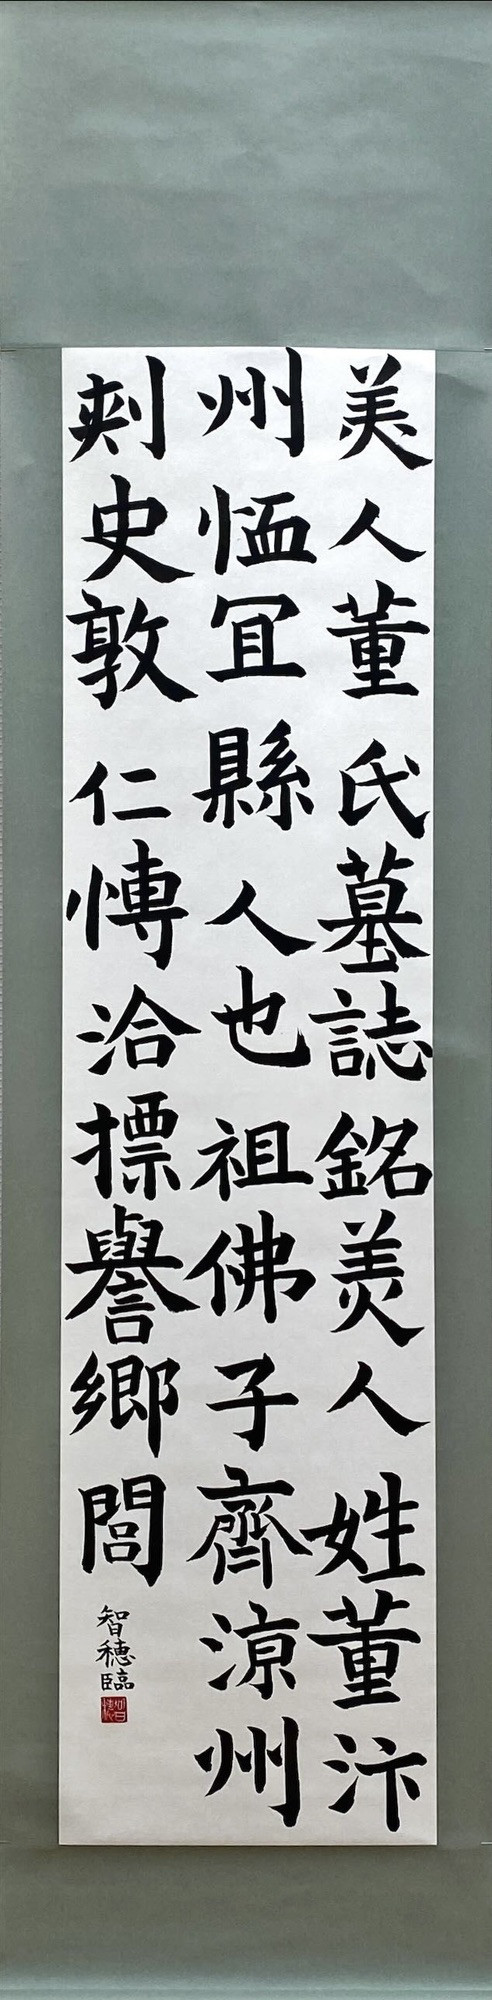 美人董氏墓誌銘美人姓董汴
州恤冝縣人也祖佛子齊涼州
刾史敦仁愽洽摽譽鄉閭
智穂臨